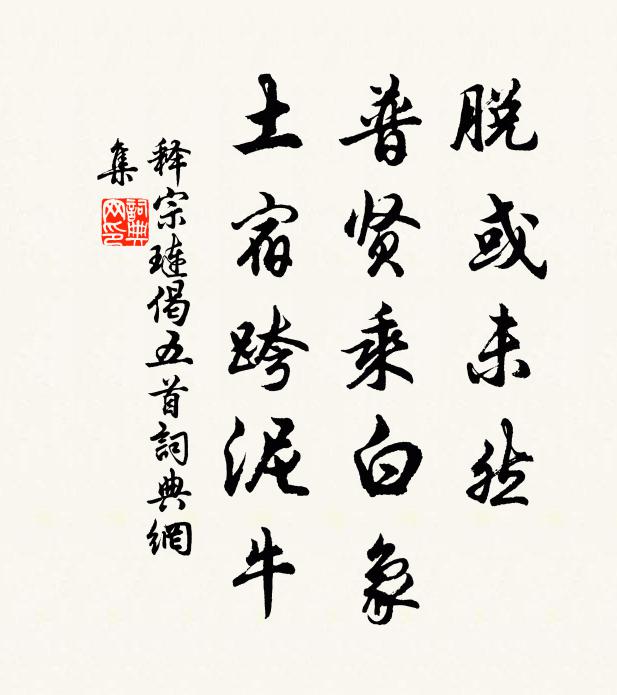 脱或未然
普贤乘白象
土宿跨泥牛
释宗琏偈五首詞典網
集
詞典
网印